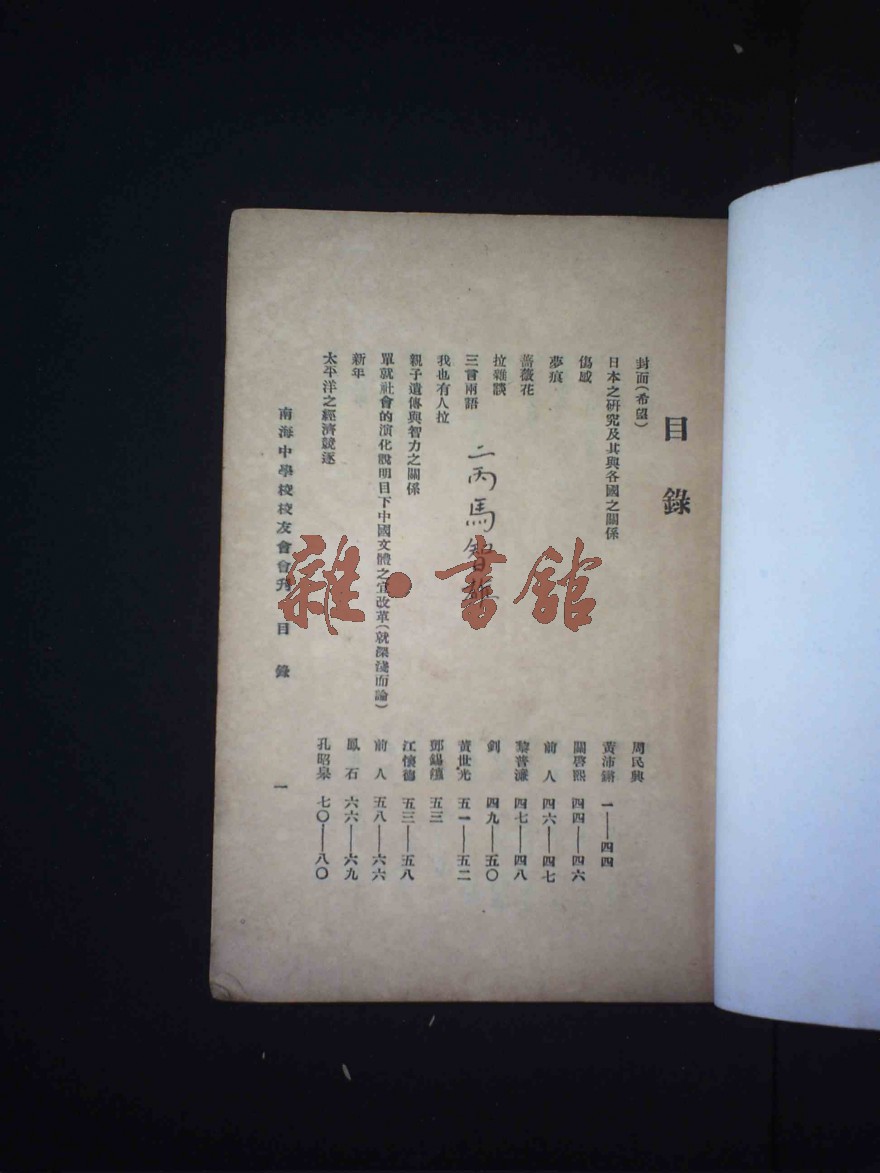 目錄
封面(希望) 周民興
日本之研究及其與各國之關係 黃沛鏘 一——四四
傷感 關啓熙 四四——四六
夢痕 前人 四六——四七
薔薇花 黎普濂 四七——四八
拉雜談 劍 四九——五〇
三言兩語 黃世光 五一——五二
我也有人拉 鄧錫 五三
親子遺傳與智力之關係 江懷德 五三——五八
單就社會的演化說明目下中國文體之宜改革(就深淺而論) 前人 五八——六六
新年 鳳石 六六——六九
太平洋之經濟競逐 孔昭皋 七〇——八〇
南海中學校校友會會刊 目錄 一
二丙馬智
雜·書館